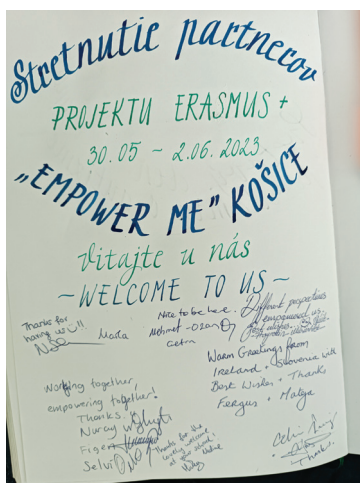 Stretnutie partnerov
PROJEKTU ERASMUS +
30.05 ~ 2.06.2023
„EMPOWER ME” KOŠICE
Vitajte u nás
~WELCOME TO US~
Thanks for
having us
Maria
Nice to be here.
Mehmet - Ozan
Çetin
Different perspectives
empowered us.
Best wishes
Warm Greetings from
Ireland + Slovenia with
Best Wishes + Thanks
Fergus + Mateja
Working together,
empowering together!
Thanks!
Nuray
Figen
Selvi
Thanks for the
lovely welcome
at your school!
Thanks.